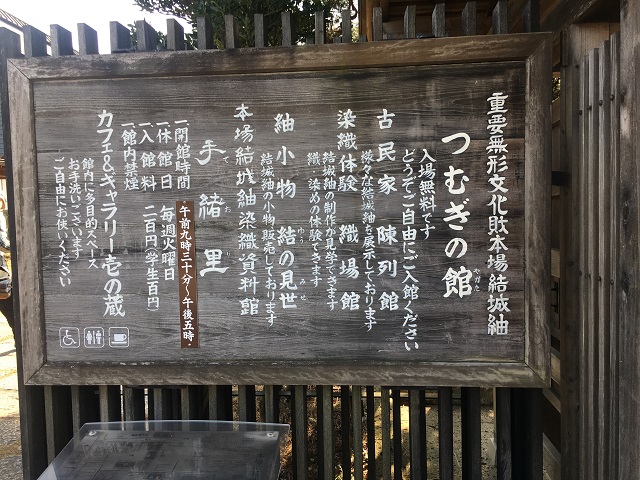 重要無形文化財本場結城紬
つむぎの館
やかた
入場無料です
どうぞご自由にご入館ください
古民家 陳列館
様々な結城紬を展示しております
染織体験 織場館
結城紬の制作が見学できます
織・染めの体験できます
紬小物 結の見世
ゆう みせ
結城紬の小物販売しております
本場結城紬染織資料館
手緒里
ており
一開館時間 午前九時三十分〜午後五時
一休館日 毎週火曜日
一入館料 二百円(学生百円)
一館内禁煙
カフェ&ギャラリー壱の蔵
館内に多目的スペース
お手洗いございます
ご自由にお使いください